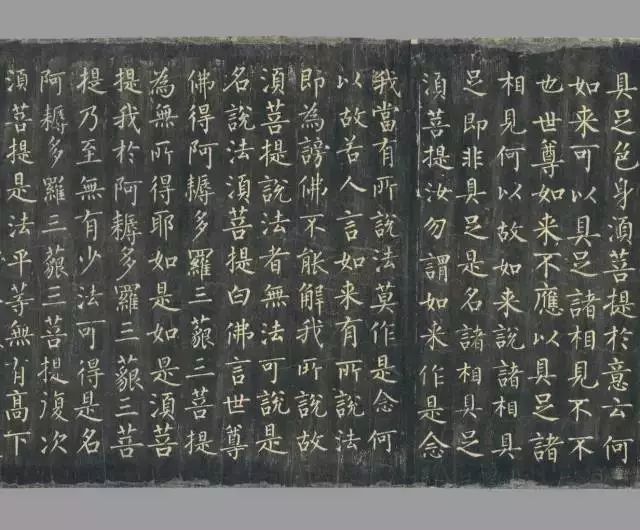 具足色身須菩提於意云何
如来可以具足諸相見不不
也世尊如来不應以具足諸
相見何以故如来說諸相具
足即非具足是名諸相具足
須菩提汝勿謂如来作是念
我當有所說法莫作是念何
以故若人言如来有所說法
即為謗佛不能解我所說故
須菩提說法者無法可說是
名說法須菩提白佛言世尊
佛得阿耨多羅三藐三菩提
為無所得耶如是如是須菩
提我於阿耨多羅三藐三菩
提乃至無有少法可得是名
阿耨多羅三藐三菩提復次
須菩提是法平等無有高下